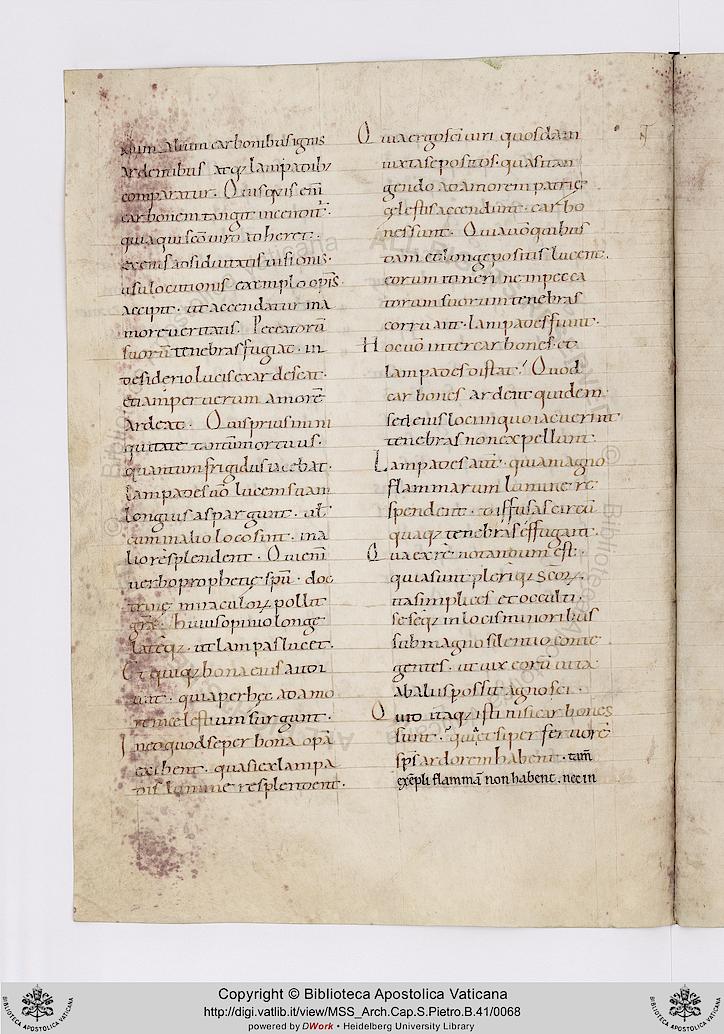 alium carbonibus ignis
ardentibus atq; lampadib;
comparatur. Quisquis eni
carbonem tangit incendit.
quia qui sco uiro adheret.
ex eius adsiduitatis uisionis.
usu locutionis exemplo opis
accipit. ut accendatur in a
more ueritatis. Peccatoru
suoru tenebras fugiat. in
desiderio lucis exardescat.
etiam per uerum amore
ardeat. Qui prius in ini
quitate tantum ortuus.
quantum frigidus iacebat.
Lampades uo lucem suam
longius aspargunt. ul
cum in alio loco sint. in a
lio resplendent. Qui eni
uerbo prophetie spu. doc
trine miraculoru pollit
gra. huius opinio longe
lateq; ut lampas lucet.
Et quiq; bona eius audi
unt. quia per hec ad amo
rem celestium surgunt.
In eo quod se per bona opa
exibent. quasi ex lampa
dis lumine resplendent.
Quia ergo sci uiri quosdam
iuxta se positos. quasi tan
gendo ad amorem patrie
celestis accendunt. carbo
nes sunt. Quia uo quibus
dam et longe positis lucent.
eorum itineri ne in pecca
torum suorum tenebras
corruant. lampades fiunt.
Hoc uo inter carbones. et
lampades distat. Quod
carbones ardent quidem.
sed eius loci in quo iacuerint
tenebras non expellunt.
Lampades aut. quia magno
flammarum lumine re
splendent. diffusas circu
quaq; tenebras effugant.
Qua ex re notandum est.
quia sunt pleriq; scoru.
ita simplices et occulti.
seseq; in locis minoribus
sub magno silentio conte
gentes. ut uix eoru uita
ab aliis possit agnosci.
Quid itaq; isti nisi carbones
sunt. qui et si per feruore
sps ardorem habent. tam
exepli flamma non habent. nec in
Copyright © Biblioteca Apostolica Vaticana
http://digi.vatlib.it/view/MSS_Arch.Cap.S.Pietro.B.41/0068
powered by DWork • Heidelberg University Library